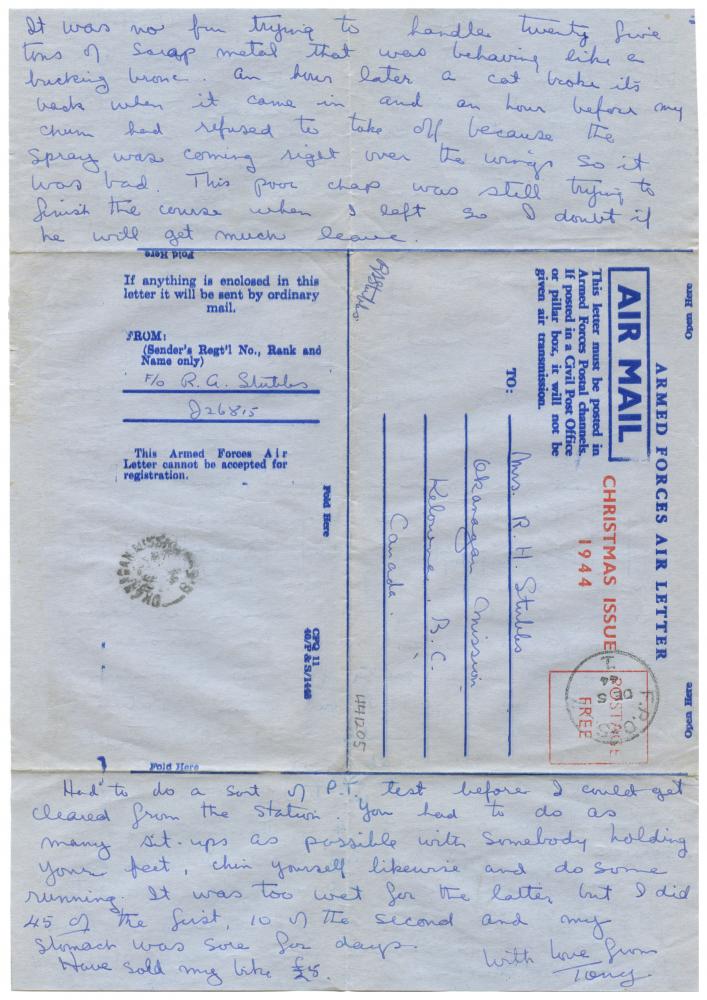 It was no fun trying to handle twenty five
tons of scrap metal that was behaving like a
bucking bronc. An hour later a cat broke its
back when it came in and an hour before my
chum had refused to take off because the
spray was coming right over the wings so it
was bad. This poor chap was still trying to
finish the course when I left so I doubt if
he will get much leave.
Fold Here
If anything is enclosed in this
letter it will be sent by ordinary
mail.
FROM:
(Sender's Regt'l No., Rank and
Name only)
F/O R. A. Stubbs
J26815
This Armed Forces Air
Letter cannot be accepted for
registration.
Fold Here
OKANAGAN MISSION B.C.
CPQ 11
40/P & S/1448
Fold Here
Open Here
ARMED FORCES AIR LETTER
AIR MAIL
This letter must be posted in
Armed Forces Postal channels.
If posted in a Civil Post Office
or pillar box, it will not be
given air transmission.
RAStubbs.
CHRISTMAS ISSUE
1944
POSTAGE
FREE
F.P.O.
5
DE
44
TO:
Mrs. R. H. Stubbs
Okanagan Mission
Kelowna, B.C.
Canada.
44205
Open Here
Had to do a sort of P.T. test before I could get
cleared from the station. You had to do as
many sit-ups as possible with somebody holding
your feet, chin yourself likewise and do some
running. It was too wet for the latter but I did
45 of the first, 10 of the second and my
stomach was sore for days.
Have sold my bike £5.
With love from
Tony.